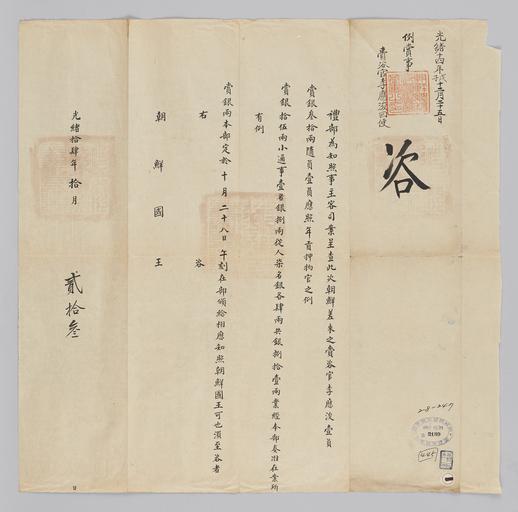 光緒十四年戊子十二月二十五日
例賞事
賚咨官李應浚回便
咨
禮部為知照事主客司案呈查此次朝鮮差來之賚咨官李應浚壹員
賞銀叁拾兩隨員壹員應照年貢押物官之例
賞銀拾伍兩小通事壹名銀捌兩從人柒名銀各肆兩共銀捌拾壹兩業經本部奏准在案所
有例
賞銀兩本部定於十月二十八日午刻在部頒給相應知照朝鮮國王可也須至咨者
右咨
朝鮮國王
光緒拾肆年拾月
貳拾叁
日
28-247
445